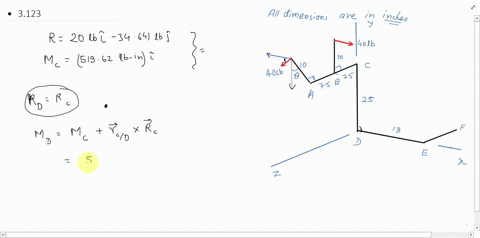 • 3.123
R = 20 lb î - 34.641 lb ĵ
M_C = (519.62 lb-in) î
=
R_D = R_C
M_D = M_C + r_C/D × R_C
= 5
All dimensions are in inches
y
40 lb
10
C
40lb
θ
10
A
7.5
B
7.5
25
D
18
F
E
x
z